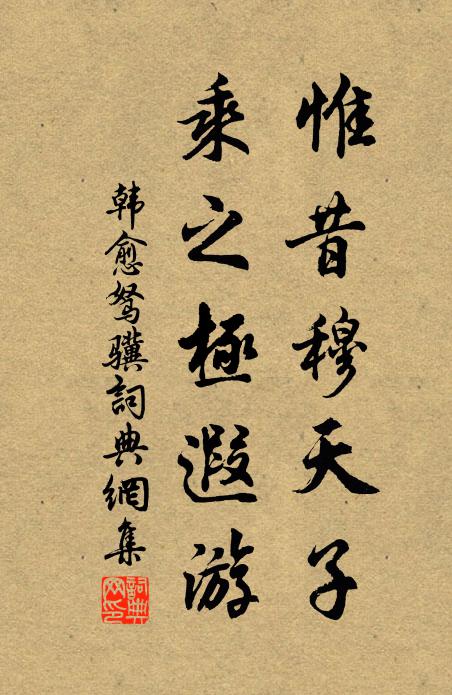 惟昔穆天子
乘之極遐游
韩愈驽驥詞典網集
詞典网印